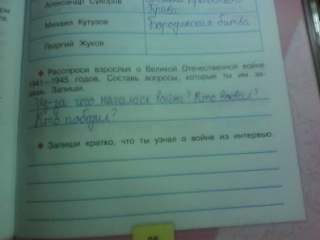 Александр Суворов
Права
Михаил Кутузов
Бородинская битва
Георгий Жуков
Расспроси взрослых о Великой Отечественной войне
1941—1945 годов. Составь вопросы, которые ты им за-
Запиши.
Из-за чего началась война? Кто
Кто победил?
Запиши кратко, что ты узнал о войне из интервью.